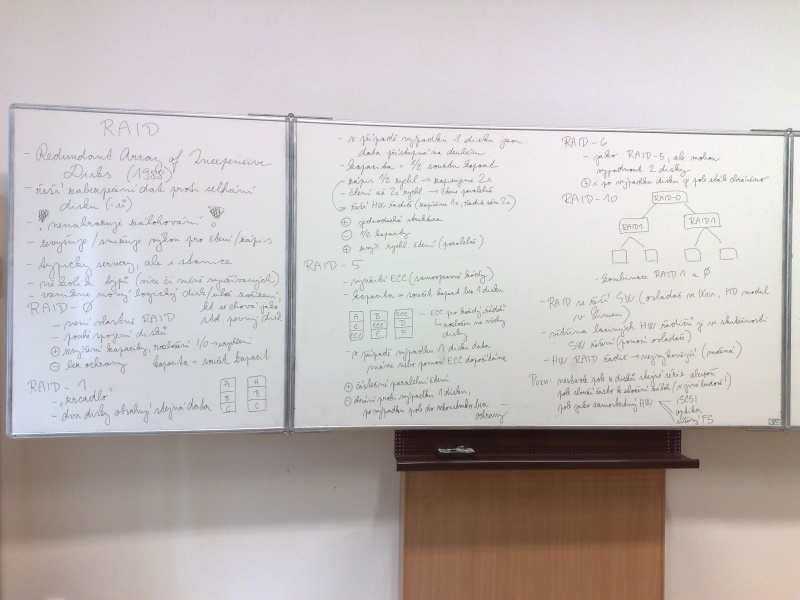 RAID
- Redundant Array of Inexpensive
Disks (1988)
- řeší zabezpečení dat proti selhání
disku (-ů)
- nenahrazuje zálohování!
- zvyšuje/snižuje výkon pro čtení/zápis
- typicky servery, ale i stanice
- několik typů (více či méně využívaných)
- vznikne nový logický disk/ulož. zařízení,
kt. se chová jako
std. pevný disk
RAID-0
- není vlastně RAID
- pouhé spojení disků
+ zvýšení kapacity, rozložení I/O
- bez ochrany kapacita = součet kapacit
RAID-1
- "zrcadlo"
- dva disky obsahují stejná data
A A
B B
C C
- v případě výpadku 1 disku jsou
data přístupná na druhém
- kapacita = 1/2 součtu kapacit
- zápis 1/2 rychl. → zapisujeme 2x
- čtení až 2x rychl → čtení paralelně
→ řeší HW řadič (zapíšeme 1x, řadič sám 2x)
+ jednoduchá struktura
- 1/2 kapacity
+ zvýš. rychl. čtení (paralelně)
RAID-5
- využití ECC (samoopravné kódy)
- kapacita = součet kapacit bez 1 disku
A B ECC
C ECC D
ECC E F
- ECC pro každý "řádek"
- rozložen na všechny
disky
- v případě výpadku 1 disku data
máme nebo pomocí ECC dopočítáme
+ částečné paralelní čtení
- chrání proti výpadku 1 disku,
po výpadku pole do rekonstrukce bez
ochrany
RAID-6
- jako RAID-5, ale mohou
vypadnout 2 disky
+ i po výpadku disku je pole stále chráněno
RAID-10
RAID-0
RAID1 RAID1
- kombinace RAID 1 a 0
- RAID se řeší SW (ovladač ve Win, MD modul
v Linuxu)
- většina laciných HW řadičů je ve skutečnosti
SW řešení (pomocí ovladače)
- HW RAID řadič → nejvýkonnější
Pozn: nestavět pole z disků stejné série
pole slouží často k uložení záloh (v jiné budově!)
pole jako samostatný HW
iSCSI
optika
síťový FS